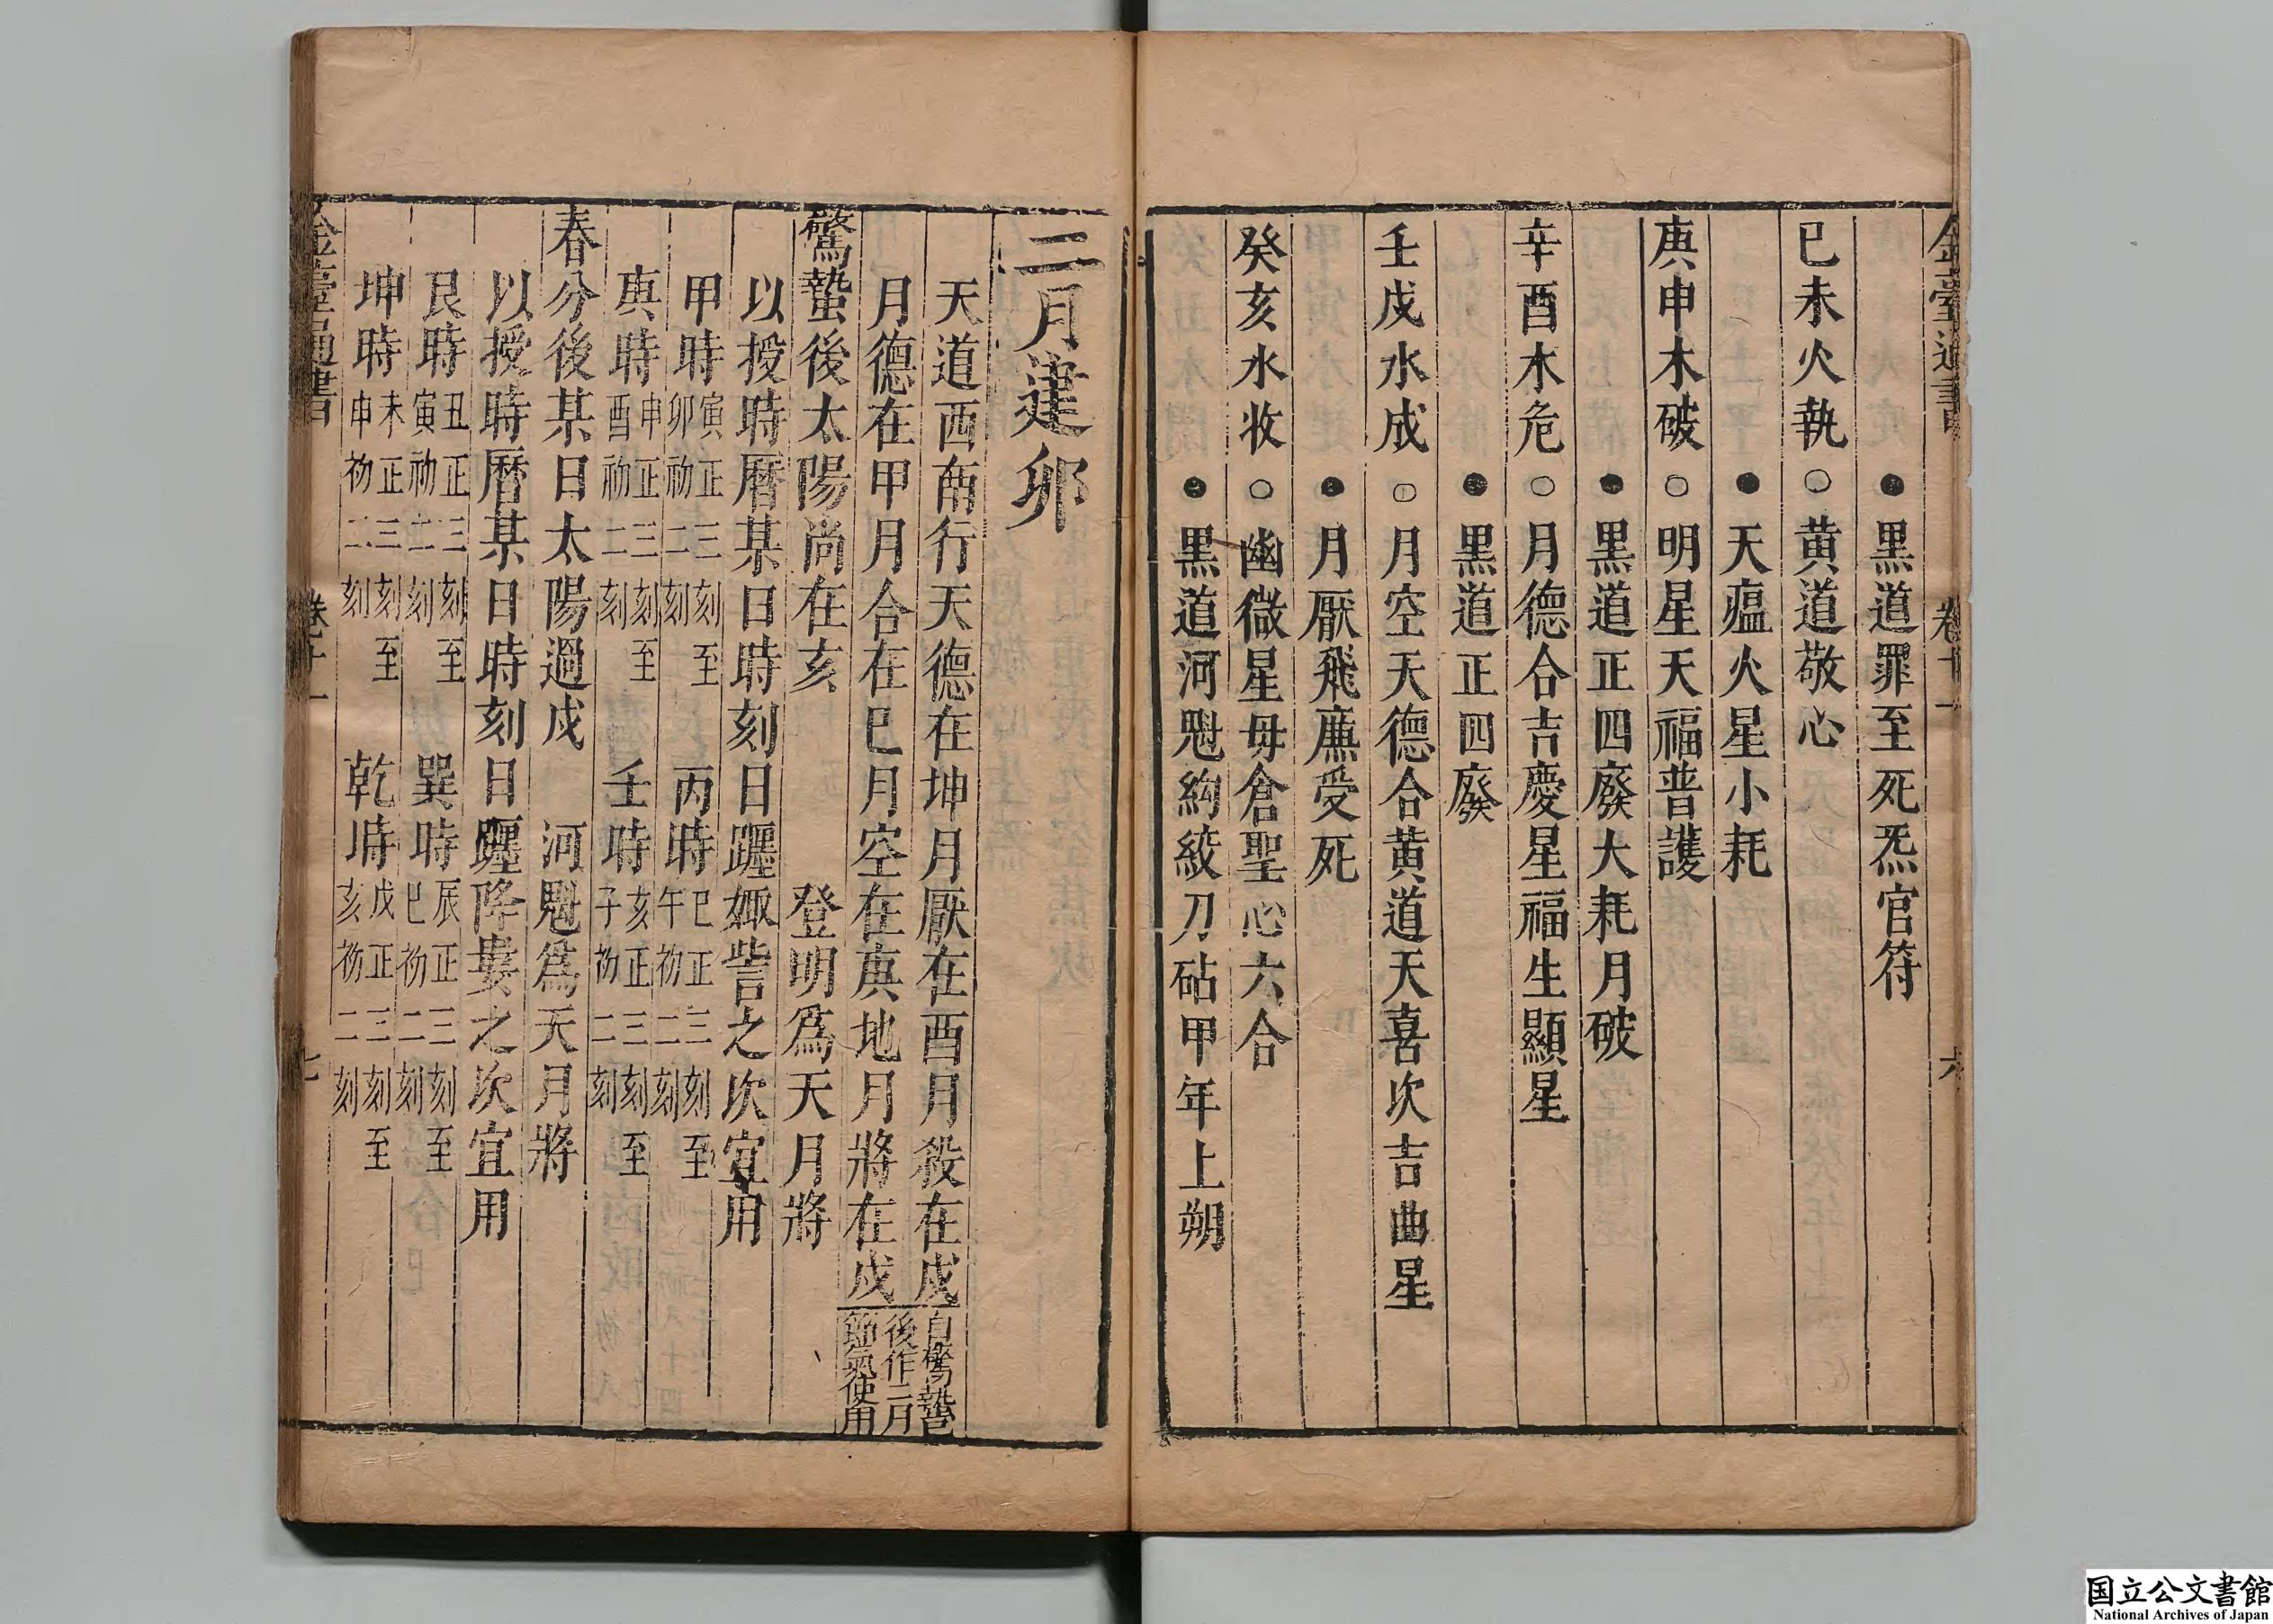 金臺通書 卷十一 六
●黑道罪至死炁官符
己未火執○黃道敬心
●天瘟火星小耗
庚申木破○明星天福普護
●黑道正四廢大耗月破
辛酉木危○月德合吉慶星福生顯星
●黑道正四廢
壬戌水成○月空天德合黃道天喜次吉曲星
●月厭飛廉受死
癸亥水收○幽微星母倉聖心六合
●黑道河魁絢絞刀砧甲年上朔
二月建卯
天道西南行天德在坤月厭在酉月殺在戌
月德在甲月合在巳月空在庚地月將在戌
自驚蟄
後作二月
節氣使用
驚蟄後太陽尚在亥 登明爲天月將
以授時曆某日時刻日躔娵訾之次宜用
甲時寅正三刻至卯初二刻 丙時巳正三刻至午初二刻
庚時申正三刻至酉初二刻 壬時亥正三刻至子初二刻
春分後某日太陽過戌 河魁爲天月將
以授時曆某日時刻日躔降婁之次宜用
艮時丑正三刻至寅初二刻 巽時辰正三刻至巳初二刻
坤時未正三刻至申初二刻 乾時戌正三刻至亥初二刻
金臺通書 卷十一 七
国立公文書館
National Archives of Japan